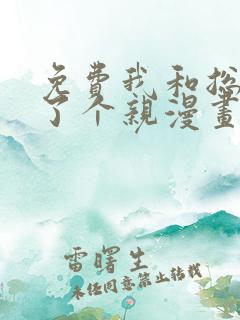 免費我和搃
了个親漫畫
雷曙生
未经同意禁止转载